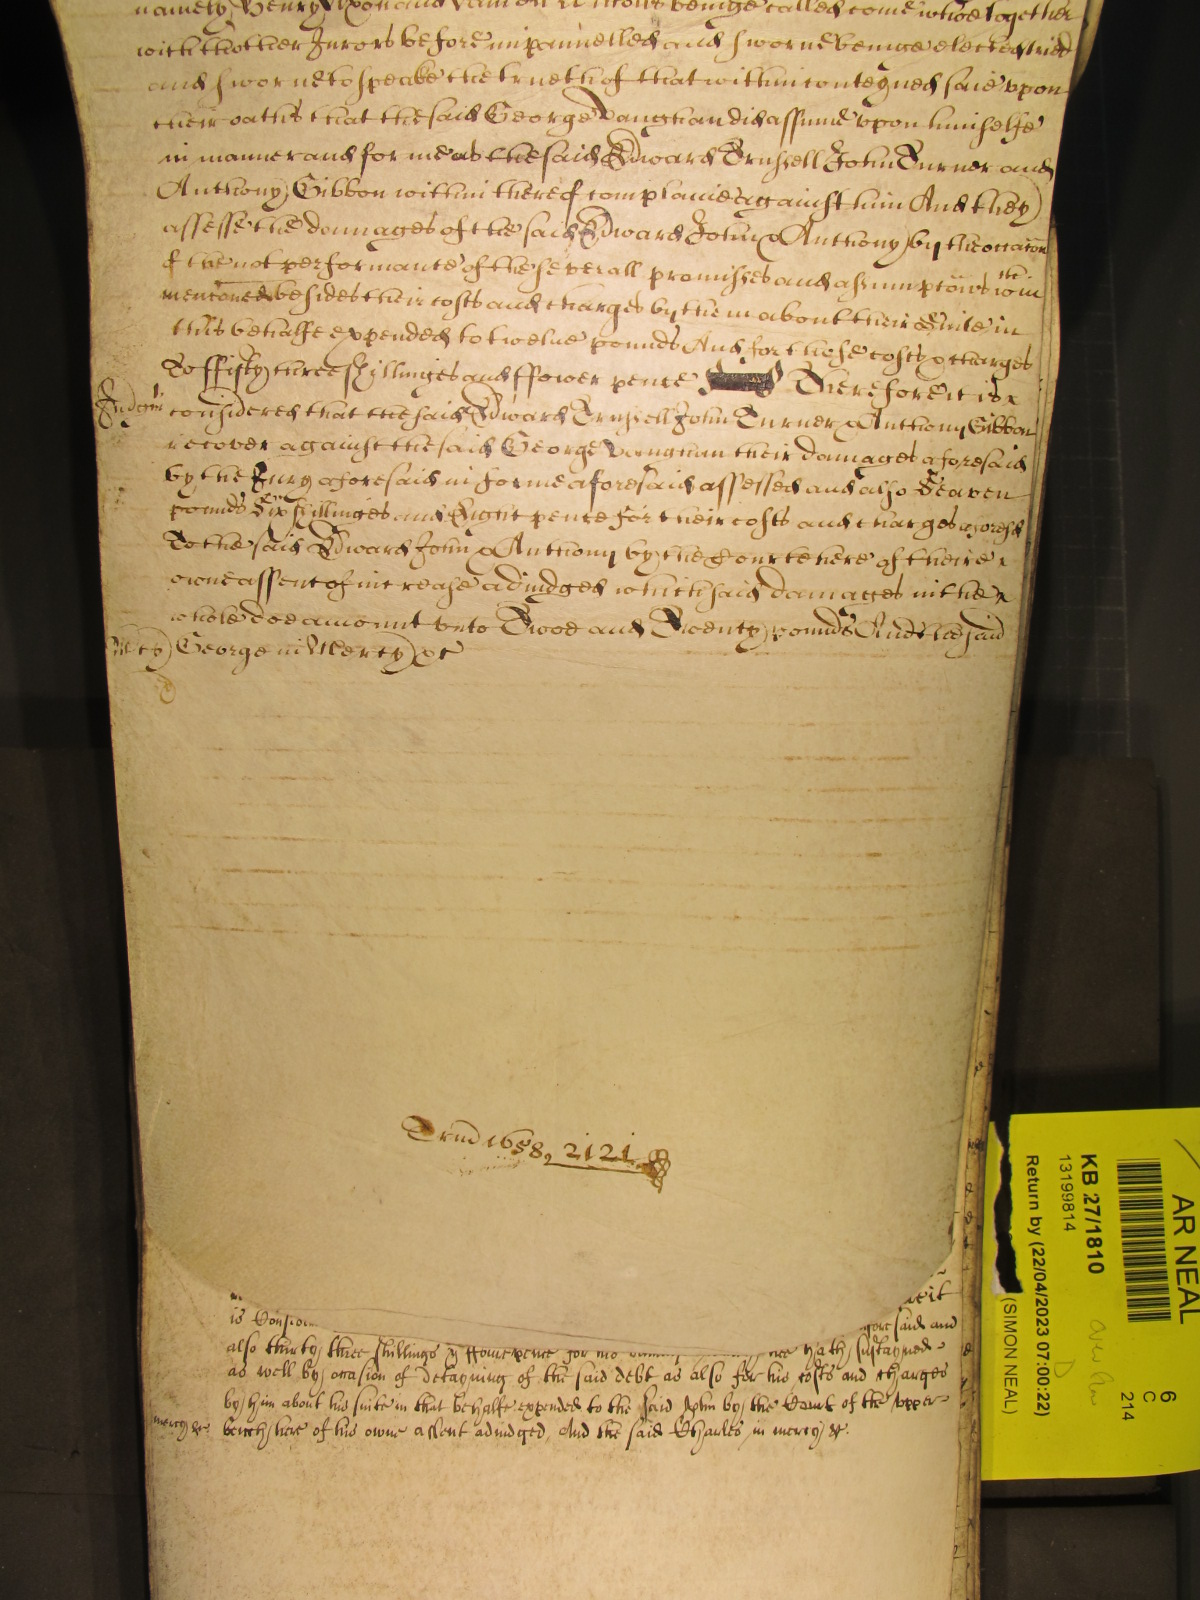 namely Henry and beinge called come whoe together
with thother Jurors before impannelled and sworne beinge elected tried
and sworne to speake the trueth of that within conteyned saie vpon
their oathes that the said George Vaughan did assume vpon himselfe
in manner and forme as the said Edward Trussell John Turner and
Anthony Gibbon within thereof complaine against him And they
assesse the damages of the said Edward John & Anthony by the occation
of the not performance of the severall promisses and assumptions wthin
mentioned besides their costs and charges by them about their suite in
this behalfe expended to twelue pounds And for those costs & charges
To ffifty three shillinges and ffower pence Therefore it is
Judgmt considered that the said Edward Trussell John Turner & Anthony Gibbon
recover against the said George Vaughan their damages aforesaid
by the Jury aforesaid in forme aforesaid assessed and also Seaven
pounds Six shillinges and Eight pence for their costs and charges aforesd
To the said Edward John & Anthony by the Court here of theire
owne assent of increase adiudged which said damages in the
whole doe amount vnto Twoe and Twenty pounds And the said
Mcy George in Mercy &c
Trin 1658, 2121
is
aforesaid and
also thirty three shillings & ffoure pence for hath sustayned
as well by occasion of Detayning of the said debt as also for his costs and charges
by him about his suite in that behalfe expended to the said John by the Court of the vpper
mercy &c. bench here of his owne assent adiudged, And the said Charles in mercy &c.
AR NEAL
6
C
214
KB 27/1810
13199814
Return by (22/04/2023 07:00:22)
(SIMON NEAL)